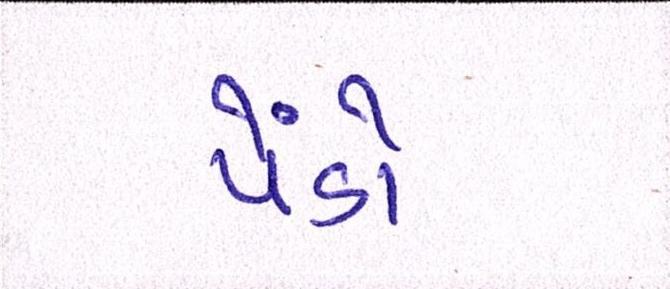 પેંડો